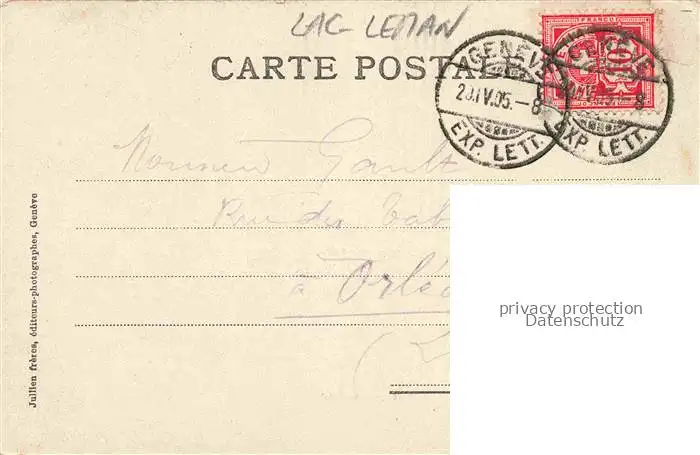 LAC LEMAN
CARTE POSTALE
FRANCO
10
GENÈVE
20.IV.05.–8
EXP. LETT.
EXP. LETT.
Monsieur Gault
Rue des Tab
à Orléa
Jullien frères, éditeurs-photographes, Genève
privacy protection
Datenschutz